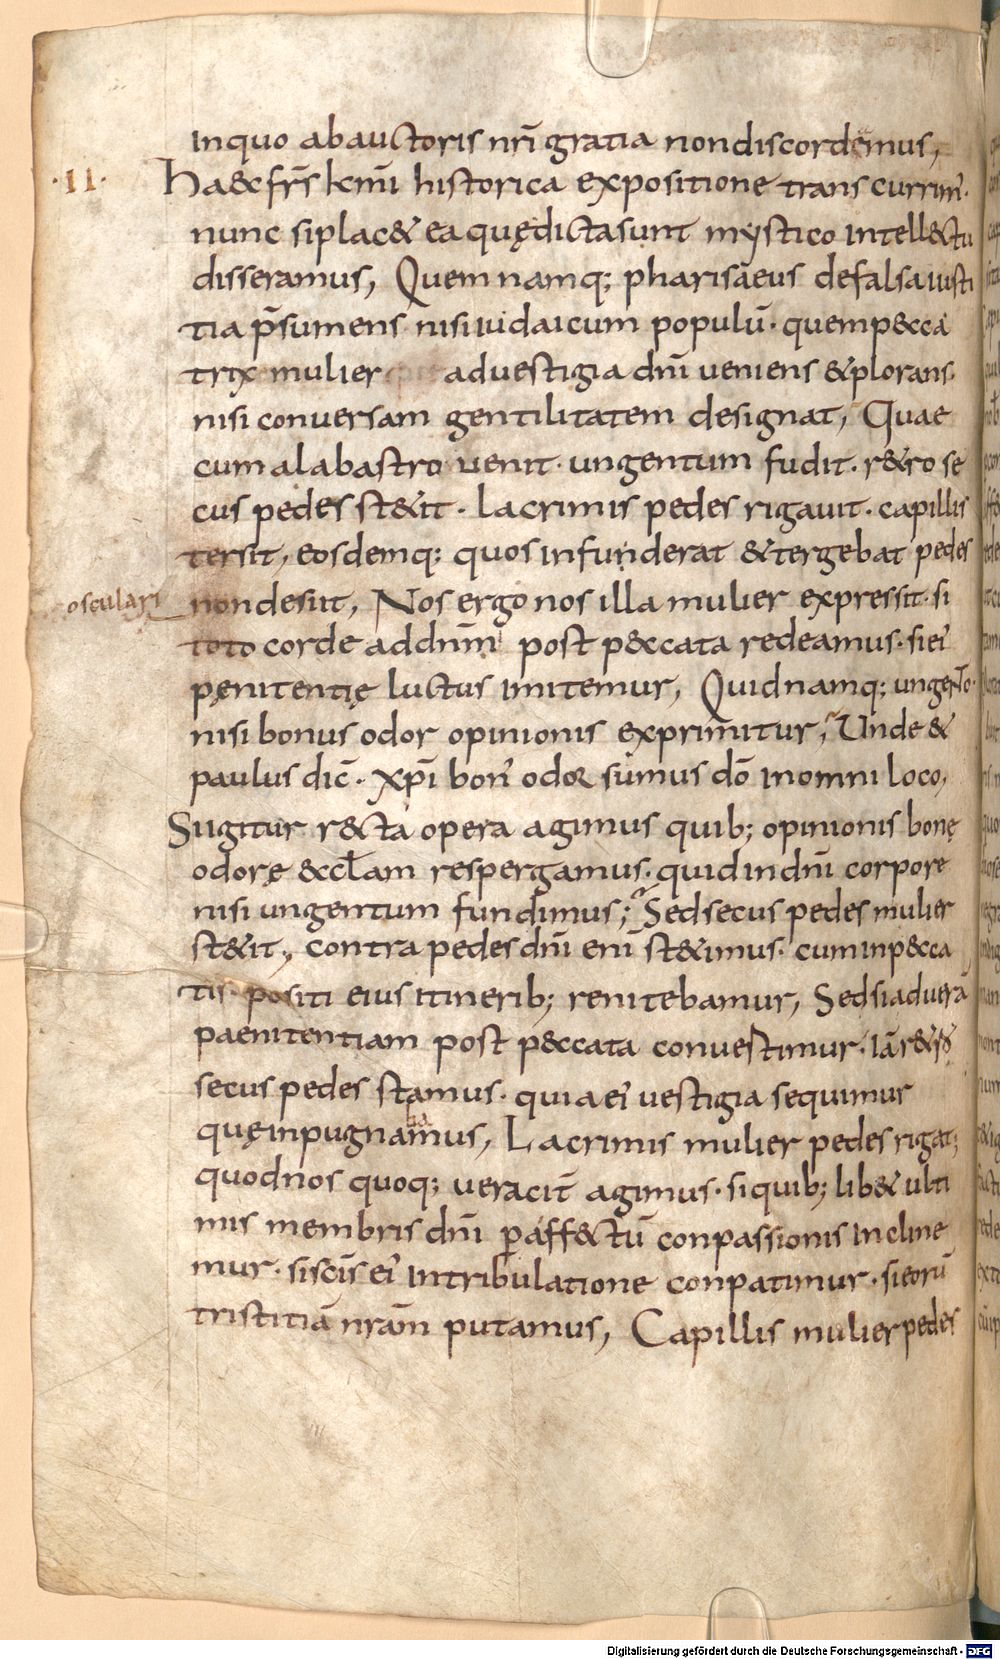 inquo abauctoris nr̄i gratia nondiscordemus,
·II· Ha&c fr̄s km̄i historica expositione transcurrim̄·
nunc siplac& ea quędictasunt mystico intell&ctu
disseramus, Quem namq; pharisaeus defalsa iusti
tia p̄sumens nisi iudaicum populū· quem p&cca
trix mulier aduestigia dn̄i ueniens &plorans·
nisi conuersam gentilitatem designat, Quae
cum alabastro uenit· ungentum fudit· r&ro se
cus pedes st&it· Lacrimis pedes rigauit· capillis
tersit, eosdemq; quos infunderat &tergebat pedes
osculari nondesiit, Nos ergo nos illa mulier expressit· si
toto corde addnm̄ post p&ccata redeamus· siei'
pęnitentię luctus imitemur, Quid namq; ungento·
nisi bonus odor opinionis exprimitur, Unde &
paulus dic̄· xp̄i boni odor sumus dō inomni loco,
Siigitur r&cta opera agimus quib; opinionis bonę
odorę &ccl̄am respergamus· quid indn̄i corpore
nisi ungentum fundimus; Sedsecus pedes mulier
st&it, contra pedes dn̄i enī st&imus· cum inp&cca
tis· positi eius itinerib; renitebamur, Sed siaduera
paenitentiam post p&ccata conuestimur· iā r&rs̄
secus pedes stamus· quia ei' uestigia sequimur
ba
quęinpugnamus, Lacrimis mulier pedes rigat;
quod nos quoq; ueracit̄ agimus· si quib; lib& ulti
mis membris dn̄i p̱affectū conpassionis incline
mur· si sc̄is ei' intribulatione conpatimur· si eorū
tristitiā nrām putamus, Capillis mulier pedes
Digitalisierung gefördert durch die Deutsche Forschungsgemeinschaft - DFG